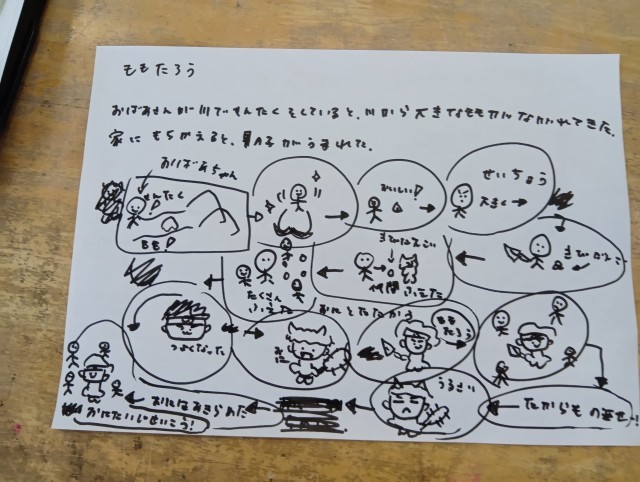 ももたろう
おばあさんが川でせんたくをしていると、川から大きなももがながれてきた。
家にもちかえると、男の子がうまれた。
おばあちゃん
せんたく
もも
おいしい!
せいちょう
大きく
きびだんご
きびだんご
仲間
ふえた
たくさん
ふえた
つよくなった
おにとたたかう
もも
たろう
たからもの返せー!
うるさい
おにはあきらめた
おにたいじせいこう!